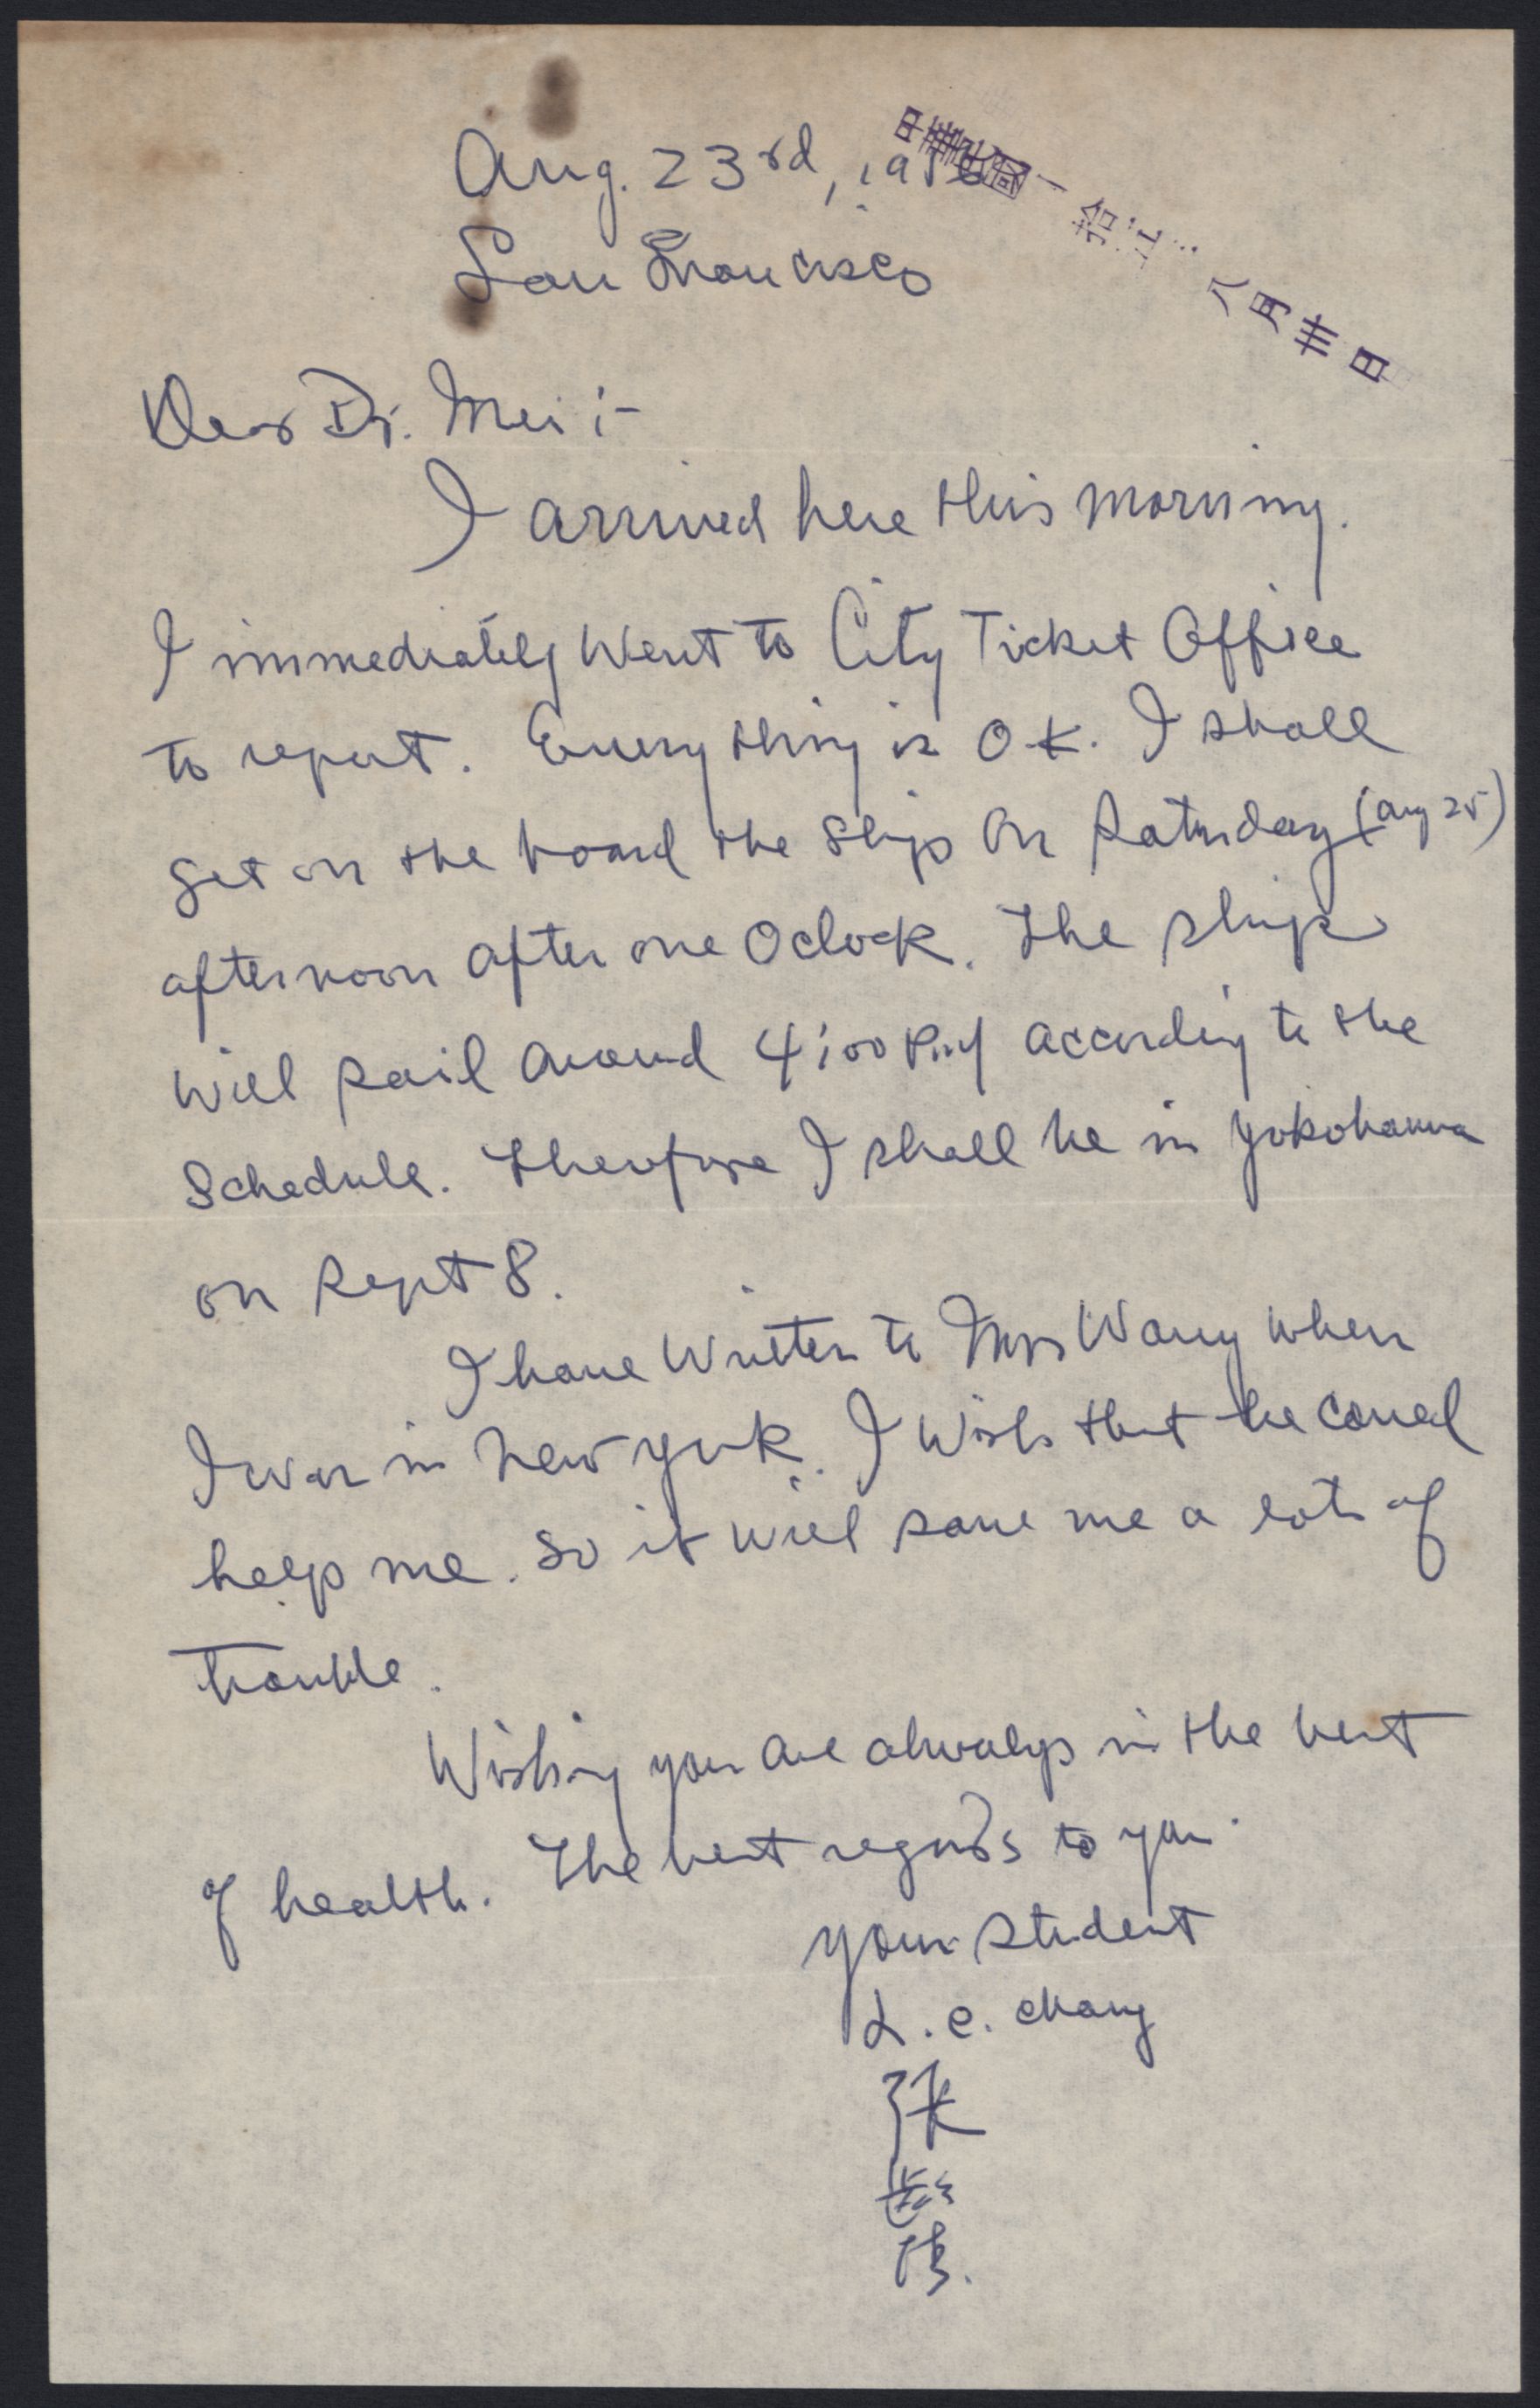 Aug. 23rd, 1956
San Francisco
八月卅日
Dear Dr. Mei :-
I arrived here this morning.
I immediately went to City Ticket Office
to report. Everything is O.K. I shall
get on the board the ship on Saturday (Aug 25)
afternoon after one Oclock. The ship
will sail around 4:00 P.M according to the
Schedule. Therefore I shall be in Yokohama
on Sept 8.
I have written to Mrs Wang when
I was in New York. I wish that he could
help me. So it will save me a lots of
trouble.
Wishing you are always in the best
of health. The best regards to you.
your student
L. C. Chang
張